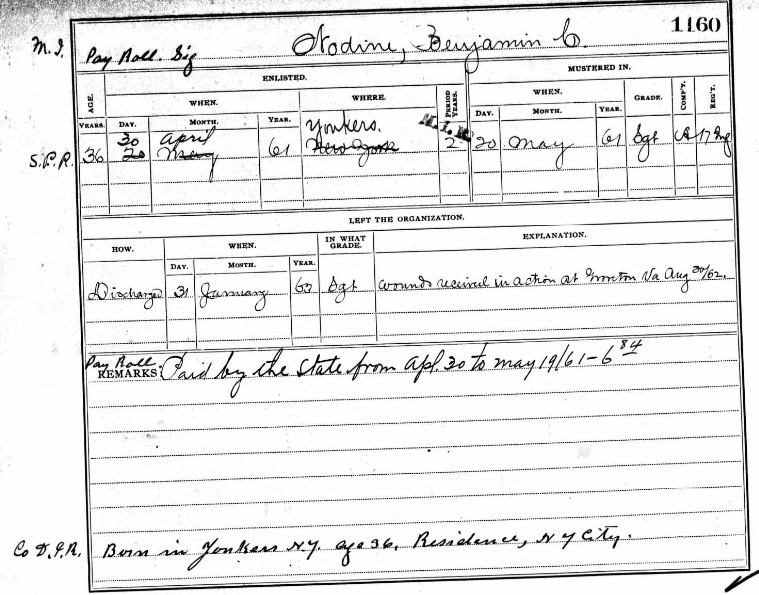 1160
M.I. Pay Roll. Sig Nodine, Benjamin C.
ENLISTED. MUSTERED IN.
AGE. WHEN. WHERE. PERIOD YEARS. WHEN. GRADE. COMP'Y. REG'T.
YEARS. DAY. MONTH. YEAR. DAY. MONTH. YEAR.
30 April Yonkers. M.I.R.
S.P.R. 36 20 May 61 New York 2 20 May 61 Sgt 17 Inf
LEFT THE ORGANIZATION.
HOW. WHEN. IN WHAT GRADE. EXPLANATION.
DAY. MONTH. YEAR.
Discharged 31 January 63 Sgt wounds received in action at Groveton Va Aug 30/62.
Pay Roll
REMARKS: Paid by the State from Apl. 30 to May 19/61 - 6 84
Co D. Born in Yonkers N.Y. age 36, Residence, N Y City.